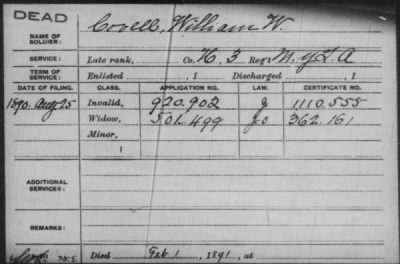 DEAD
NAME OF SOLDIER: Covell, William W.
SERVICE: Late rank, Co. H, 3 Reg't N.Y.L.A
TERM OF SERVICE: Enlisted , 1 Discharged , 1
DATE OF FILING. CLASS. APPLICATION NO. LAW. CERTIFICATE NO.
1890. Aug 25 Invalid, 920.902 J 1.110.555
Widow, 501.499 362.161
Minor,
1
ADDITIONAL SERVICES:
REMARKS:
Died Feb 1, 1891, at